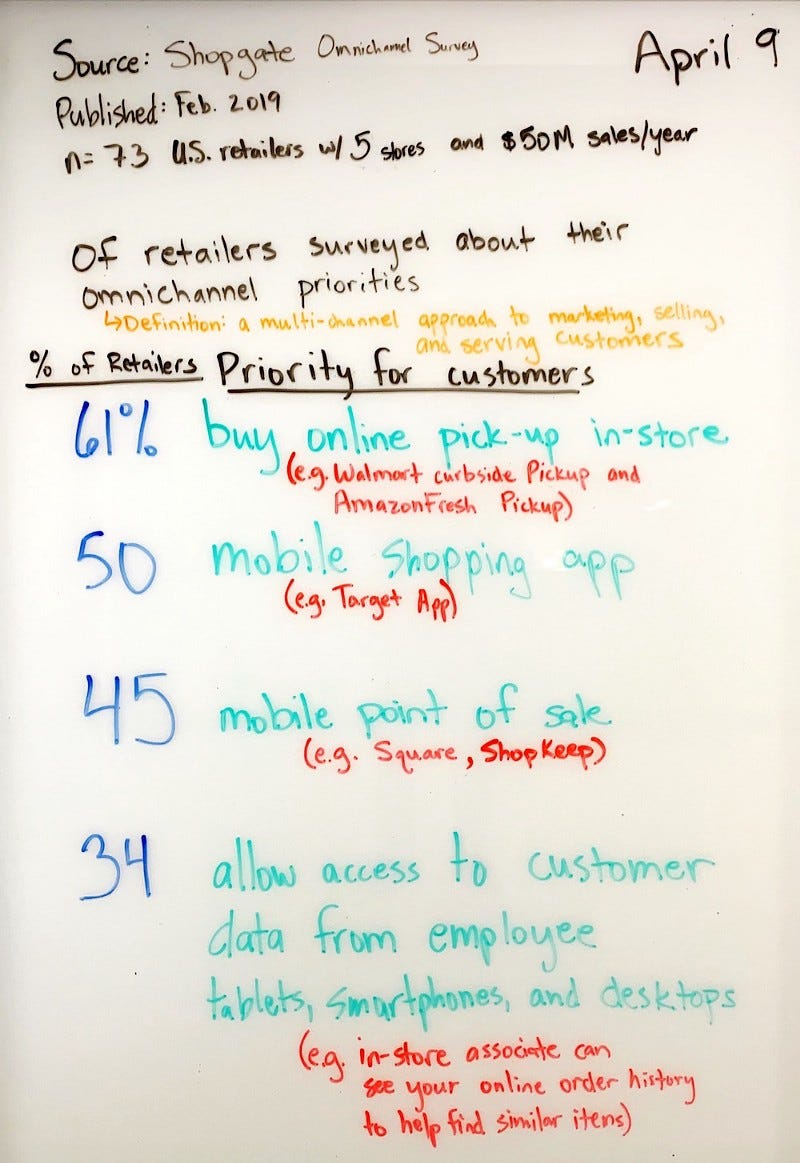 Source: Shopgate Omnichannel Survey
April 9
Published: Feb. 2019
n= 73 U.S. retailers w/ 5 stores and $50M sales/year
Of retailers surveyed about their
omnichannel priorities
↳Definition: a multi-channel approach to marketing, selling,
and serving customers
% of Retailers Priority for customers
61% buy online pick-up in-store
(e.g. Walmart curbside Pickup and
AmazonFresh Pickup)
50 mobile shopping app
(e.g. Target App)
45 mobile point of sale
(e.g. Square, ShopKeep)
34 allow access to customer
data from employee
tablets, smartphones, and desktops
(e.g. in-store associate can
see your online order history
to help find similar items)